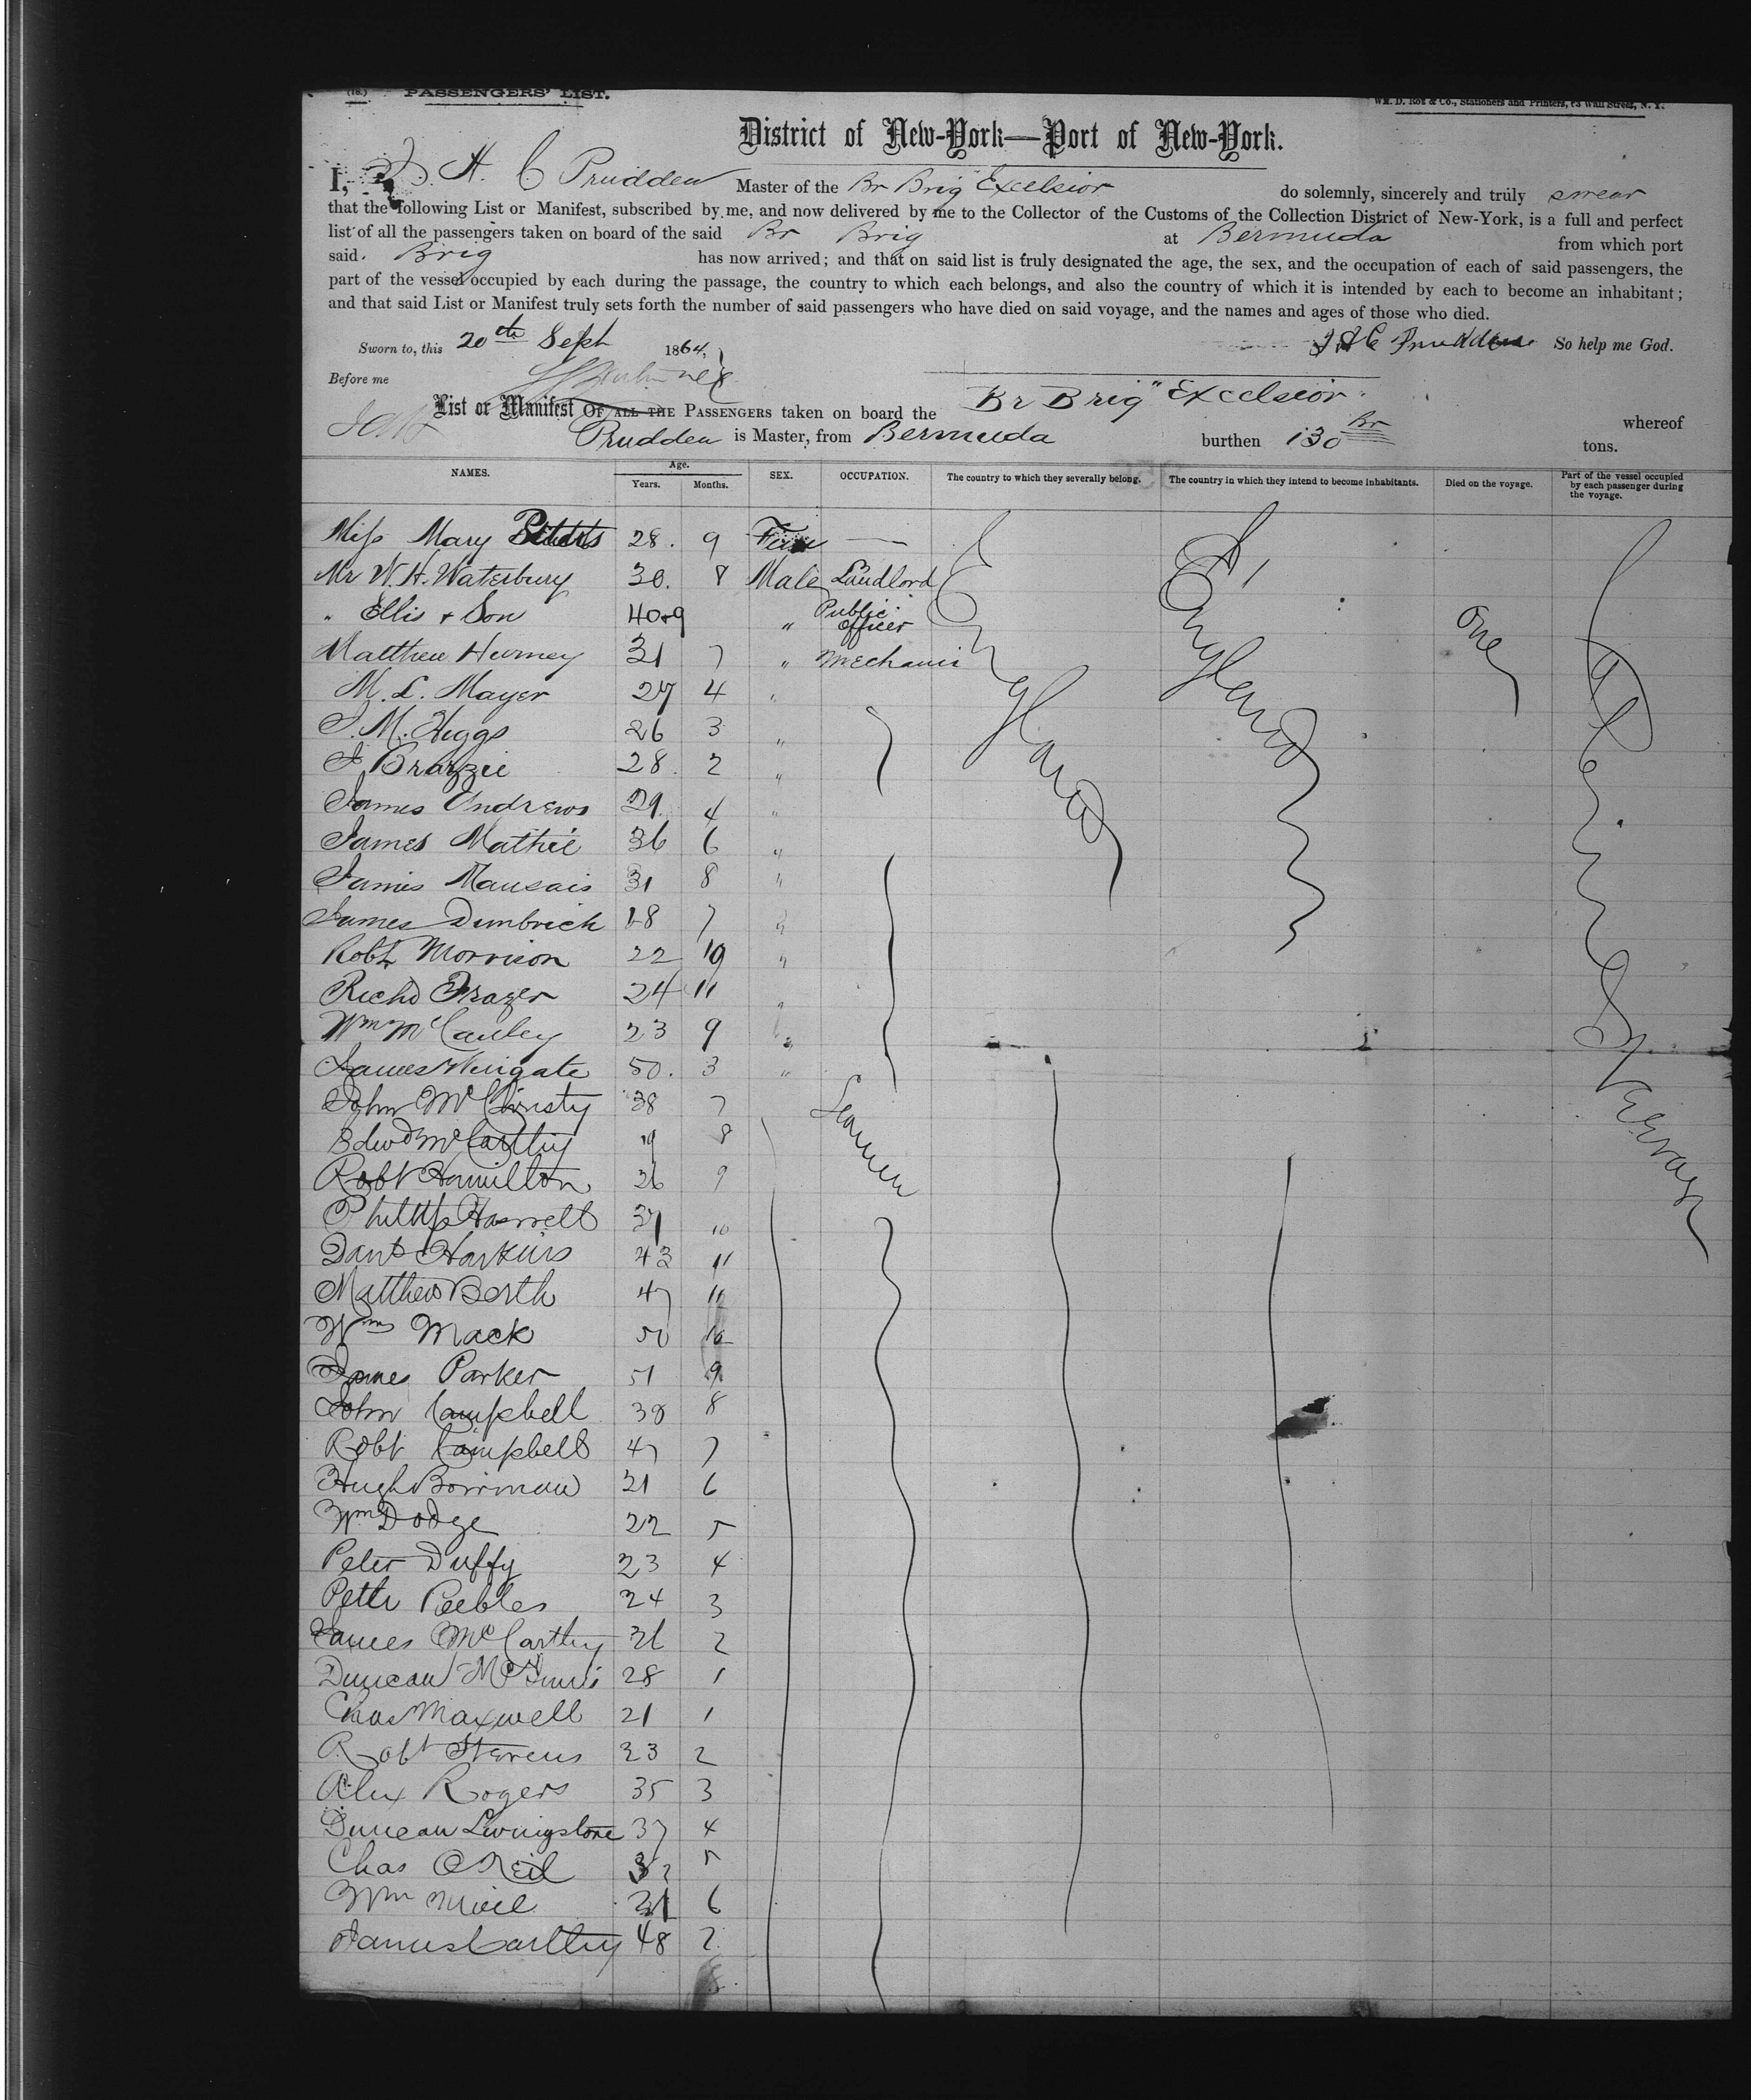 (18.) PASSENGERS' LIST.
WM. D. ROE & Co., Stationers and Printers, 73 Wall Street, N. Y.
District of New-York—Port of New-York.
I, J. H. C Prudden Master of the Br Brig "Excelsior do solemnly, sincerely and truly swear
that the following List or Manifest, subscribed by me, and now delivered by me to the Collector of the Customs of the Collection District of New-York, is a full and perfect
list of all the passengers taken on board of the said Br Brig at Bermuda from which port
said Brig has now arrived; and that on said list is truly designated the age, the sex, and the occupation of each of said passengers, the
part of the vessel occupied by each during the passage, the country to which each belongs, and also the country of which it is intended by each to become an inhabitant;
and that said List or Manifest truly sets forth the number of said passengers who have died on said voyage, and the names and ages of those who died.
Sworn to, this 20th Sept 1864, J H C Prudden So help me God.
Before me
List or Manifest OF ALL THE PASSENGERS taken on board the Br Brig "Excelsior" whereof
Prudden is Master, from Bermuda burthen 130 Br tons.
NAMES. Age. Years. Months. SEX. OCCUPATION. The country to which they severally belong. The country in which they intend to become inhabitants. Died on the voyage. Part of the vessel occupied by each passenger during the voyage.
Miss Mary 28. 9 Fem —
Mr W. H. Waterbury 30. 8 Male Landlord
" Ellis & Son 40&9 " Public Officer
Matthew Hurney 31 7 " Mechanic
M. L. Mayer 27 4 "
J. M. Higgs 26 3 "
J Brazzie 28. 2 "
James Andrews 29. 4 "
James Mathie 36 6 "
James 31 8 "
James Dimbrick 18 7 "
Robt Morrison 22 10 "
Richd Frazer 24 11 "
Wm McCauley 23 9 "
James Wingate 50. 3 "
John McChristy 38 7
Edwd McCarthy 19 8
Robt Hamilton 36 9
Phillip Haswell 37 10
Danl Harkins 43 11
Matthew Berth 47 11
Wm Mack 50 10
James Parker 51 9
John Campbell 38 8
Robt Campbell 47 7
Hugh Borrman 21 6
Wm Dodge 22 5
Peter Duffy 23 4
Peter Peebles 24 3
James McCarthy 26 2
Duncan McInnis 28 1
Chas Maxwell 21 1
Robt Stevens 33 2
Alex Rogers 35 3
Duncan Livingstone 37 4
Chas O Neil 32 5
Wm Neil 31 6
James Carthy 48 7
8
Seamen
England
England
One
Cabin & Steerage